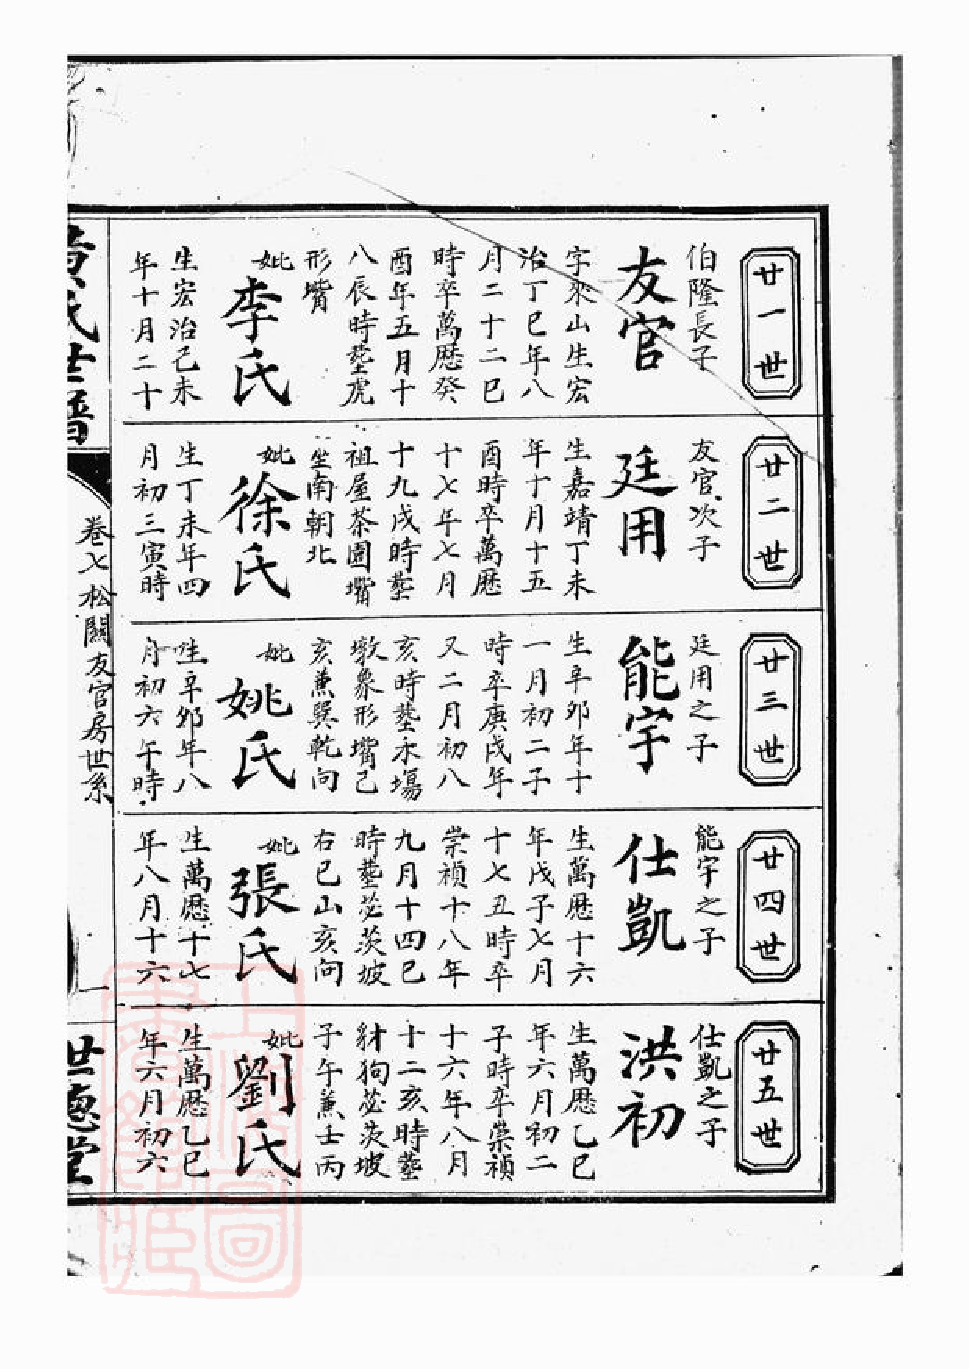 廿一世
伯隆長子
友官
字來山生宏
治丁巳年八
月二十二巳
時卒萬歷癸
酉年五月十
八辰時塟虎
形嘴
妣李氏
生宏治己未
年十月二十
廿二世
友官次子
廷用
生嘉靖丁未
年十月十五
酉時卒萬歷
十七年七月
十九戌時塟
祖屋茶園嘴
坐南朝北
妣徐氏
生丁未年四
月初三寅時
廿三世
廷用之子
能宇
生辛卯年十
一月初二子
時卒庚戌年
又二月初八
亥時塟水塲
墩象形嘴己
亥兼巽乾向
妣姚氏
生辛卯年八
月初六午時
廿四世
能宇之子
仕凱
生萬歷十六
年戊子七月
十七丑時卒
崇禎十八年
九月十四巳
時塟苾茨坡
右巳山亥向
妣張氏
生萬歷十七
年八月十六
廿五世
仕凱之子
洪初
生萬歷乙巳
年六月初二
子時卒崇禎
十六年八月
十二亥時塟
豺狗苾茨坡
子午兼壬丙
妣劉氏
生萬歷乙巳
年六月初六
黄氏世譜
卷七松關友官房世系
一
世德堂